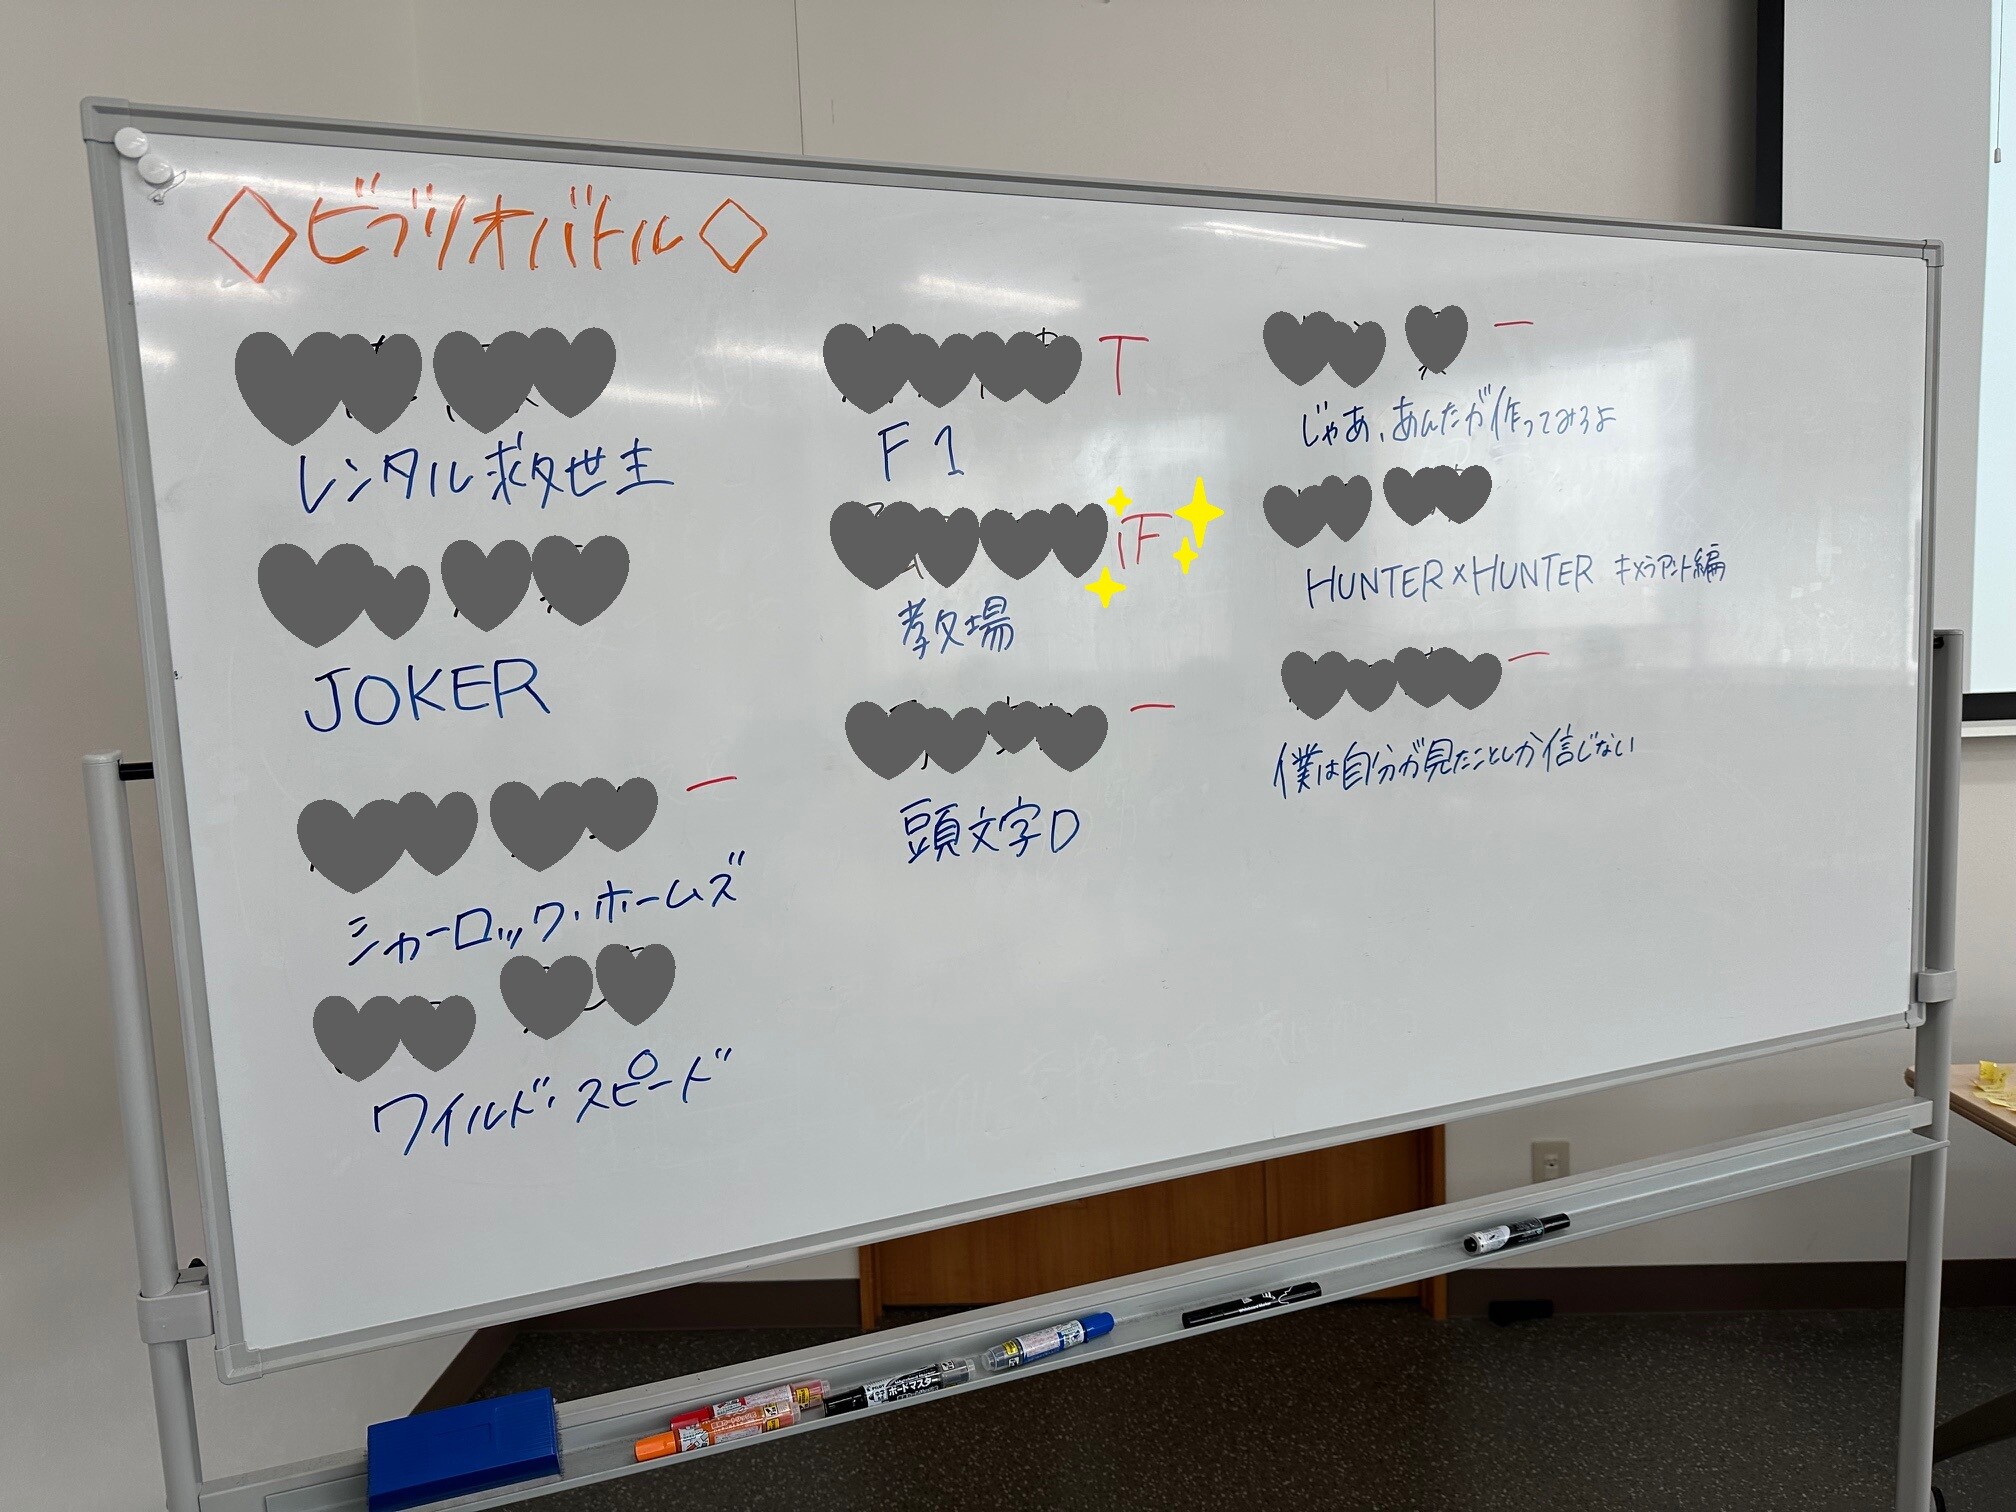 ◇ビブリオバトル◇
レンタル救世主
JOKER
シャーロック・ホームズ
ワイルド・スピード
T
F1
教場
頭文字D
じゃあ、あんたが作ってみろよ
HUNTER×HUNTER キメラアント編
僕は自分が見たことしか信じない
ボードマスター